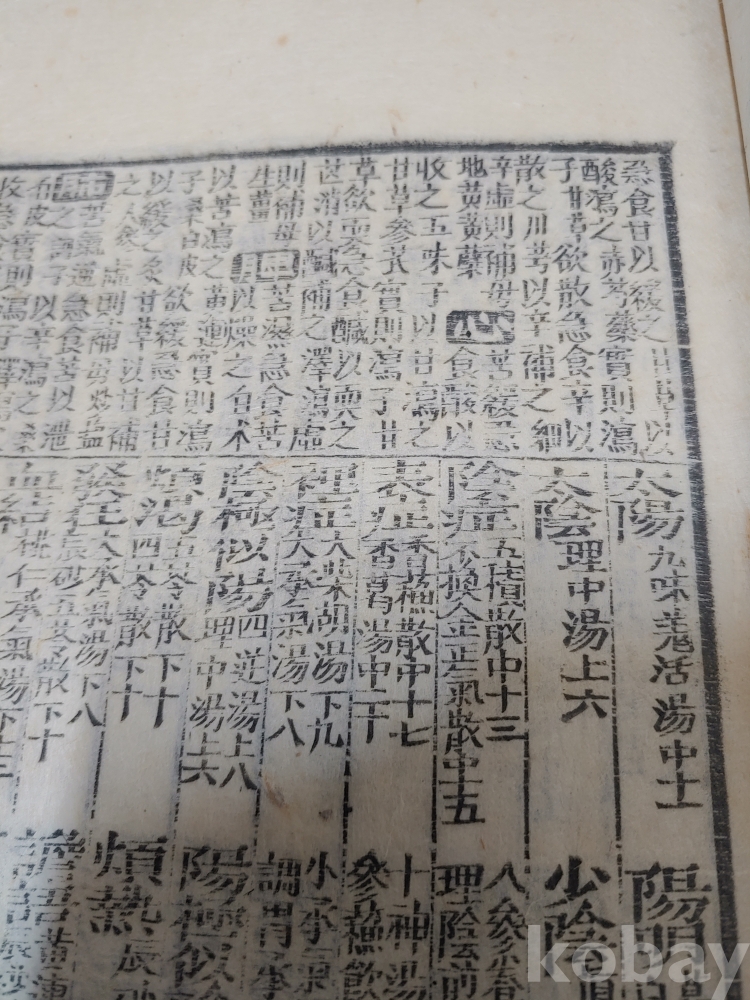 急食甘以緩之甘草以
酸瀉之赤芍藥實則瀉
子甘草欲散急食辛以
散之川芎以辛補之細
辛虛則補母
地黃黃蘗
心
苦緩急
食酸以
收之五味子以甘瀉之
甘草參芪實則瀉子甘
草欲耎急食鹹以耎之
芒消以鹹補之澤瀉虛
則補母
生薑
脾
苦濕急食苦
以燥之白术
以苦瀉之黃連實則瀉
子桑白皮欲緩急食甘
以緩之炙甘草以甘補
之人參虛則補母炒鹽
苦氣逆急食苦以泄
之訶子以辛瀉之桑
太陽 九味羌活湯中十一
太陰 理中湯上六
陰症 五積散中十三
不換金正氣散中十五
表症 香蘇散中十七
香葛湯中二十
裡症 大柴胡湯下九
大承氣湯下八
陰極似陽 四逆湯上八
理中湯上六
煩渴 五苓散下十
四苓散下十
發狂 大承氣湯下八
辰砂五苓散下十
血結 桃仁承氣湯下十三
陽明
少陰
理陰煎
十神湯
參蘇飲
小承氣
調胃承
陽極似
煩熱 辰砂
譫語 黃連
kobay